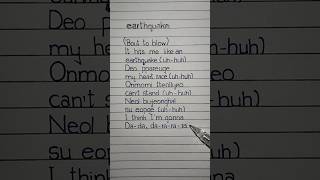 earthquake
(Bout to blow)
It hits me like an
earthquake (uh-huh)
Deo ppareuge
my heart race (uh-huh)
Onmomi tteollyeo
can't stand (uh-huh)
Neol bujeonghal
su eopge (uh-huh)
I think I'm gonna
Da-da, da-ra-ra-ra